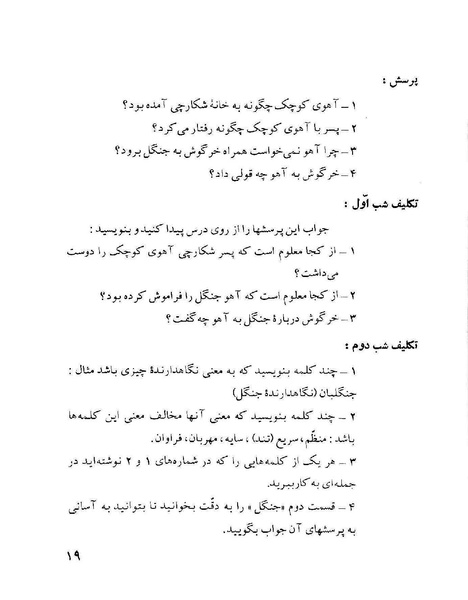 پرسش :
۱ – آهوی کوچک چگونه به خانهٔ شکارچی آمده بود؟
۲ – پسر با آهوی کوچک چگونه رفتار می‌کرد؟
۳ – چرا آهو نمی‌خواست همراه خرگوش به جنگل برود؟
۴ – خرگوش به آهو چه قولی داد؟
تکلیف شب اوّل :
جواب این پرسشها را از روی درس پیدا کنید و بنویسید :
۱ – از کجا معلوم است که پسر شکارچی آهوی کوچک را دوست
می‌داشت؟
۲ – از کجا معلوم است که آهو جنگل را فراموش کرده بود؟
۳ – خرگوش دربارهٔ جنگل به آهو چه گفت؟
تکلیف شب دوم :
۱ – چند کلمه بنویسید که به معنی نگاهدارندهٔ چیزی باشد مثال :
جنگلبان (نگاهدارندهٔ جنگل)
۲ – چند کلمه بنویسید که معنی آنها مخالف معنی این کلمه‌ها
باشد : منظّم، سریع (تند) ، سایه، مهربان، فراوان.
۳ – هر یک از کلمه‌هایی را که در شماره‌های ۱ و ۲ نوشته‌اید در
جمله‌ای به کار ببرید.
۴ – قسمت دوم «جنگل» را به دقّت بخوانید تا بتوانید به آسانی
به پرسشهای آن جواب بگویید.
۱۹